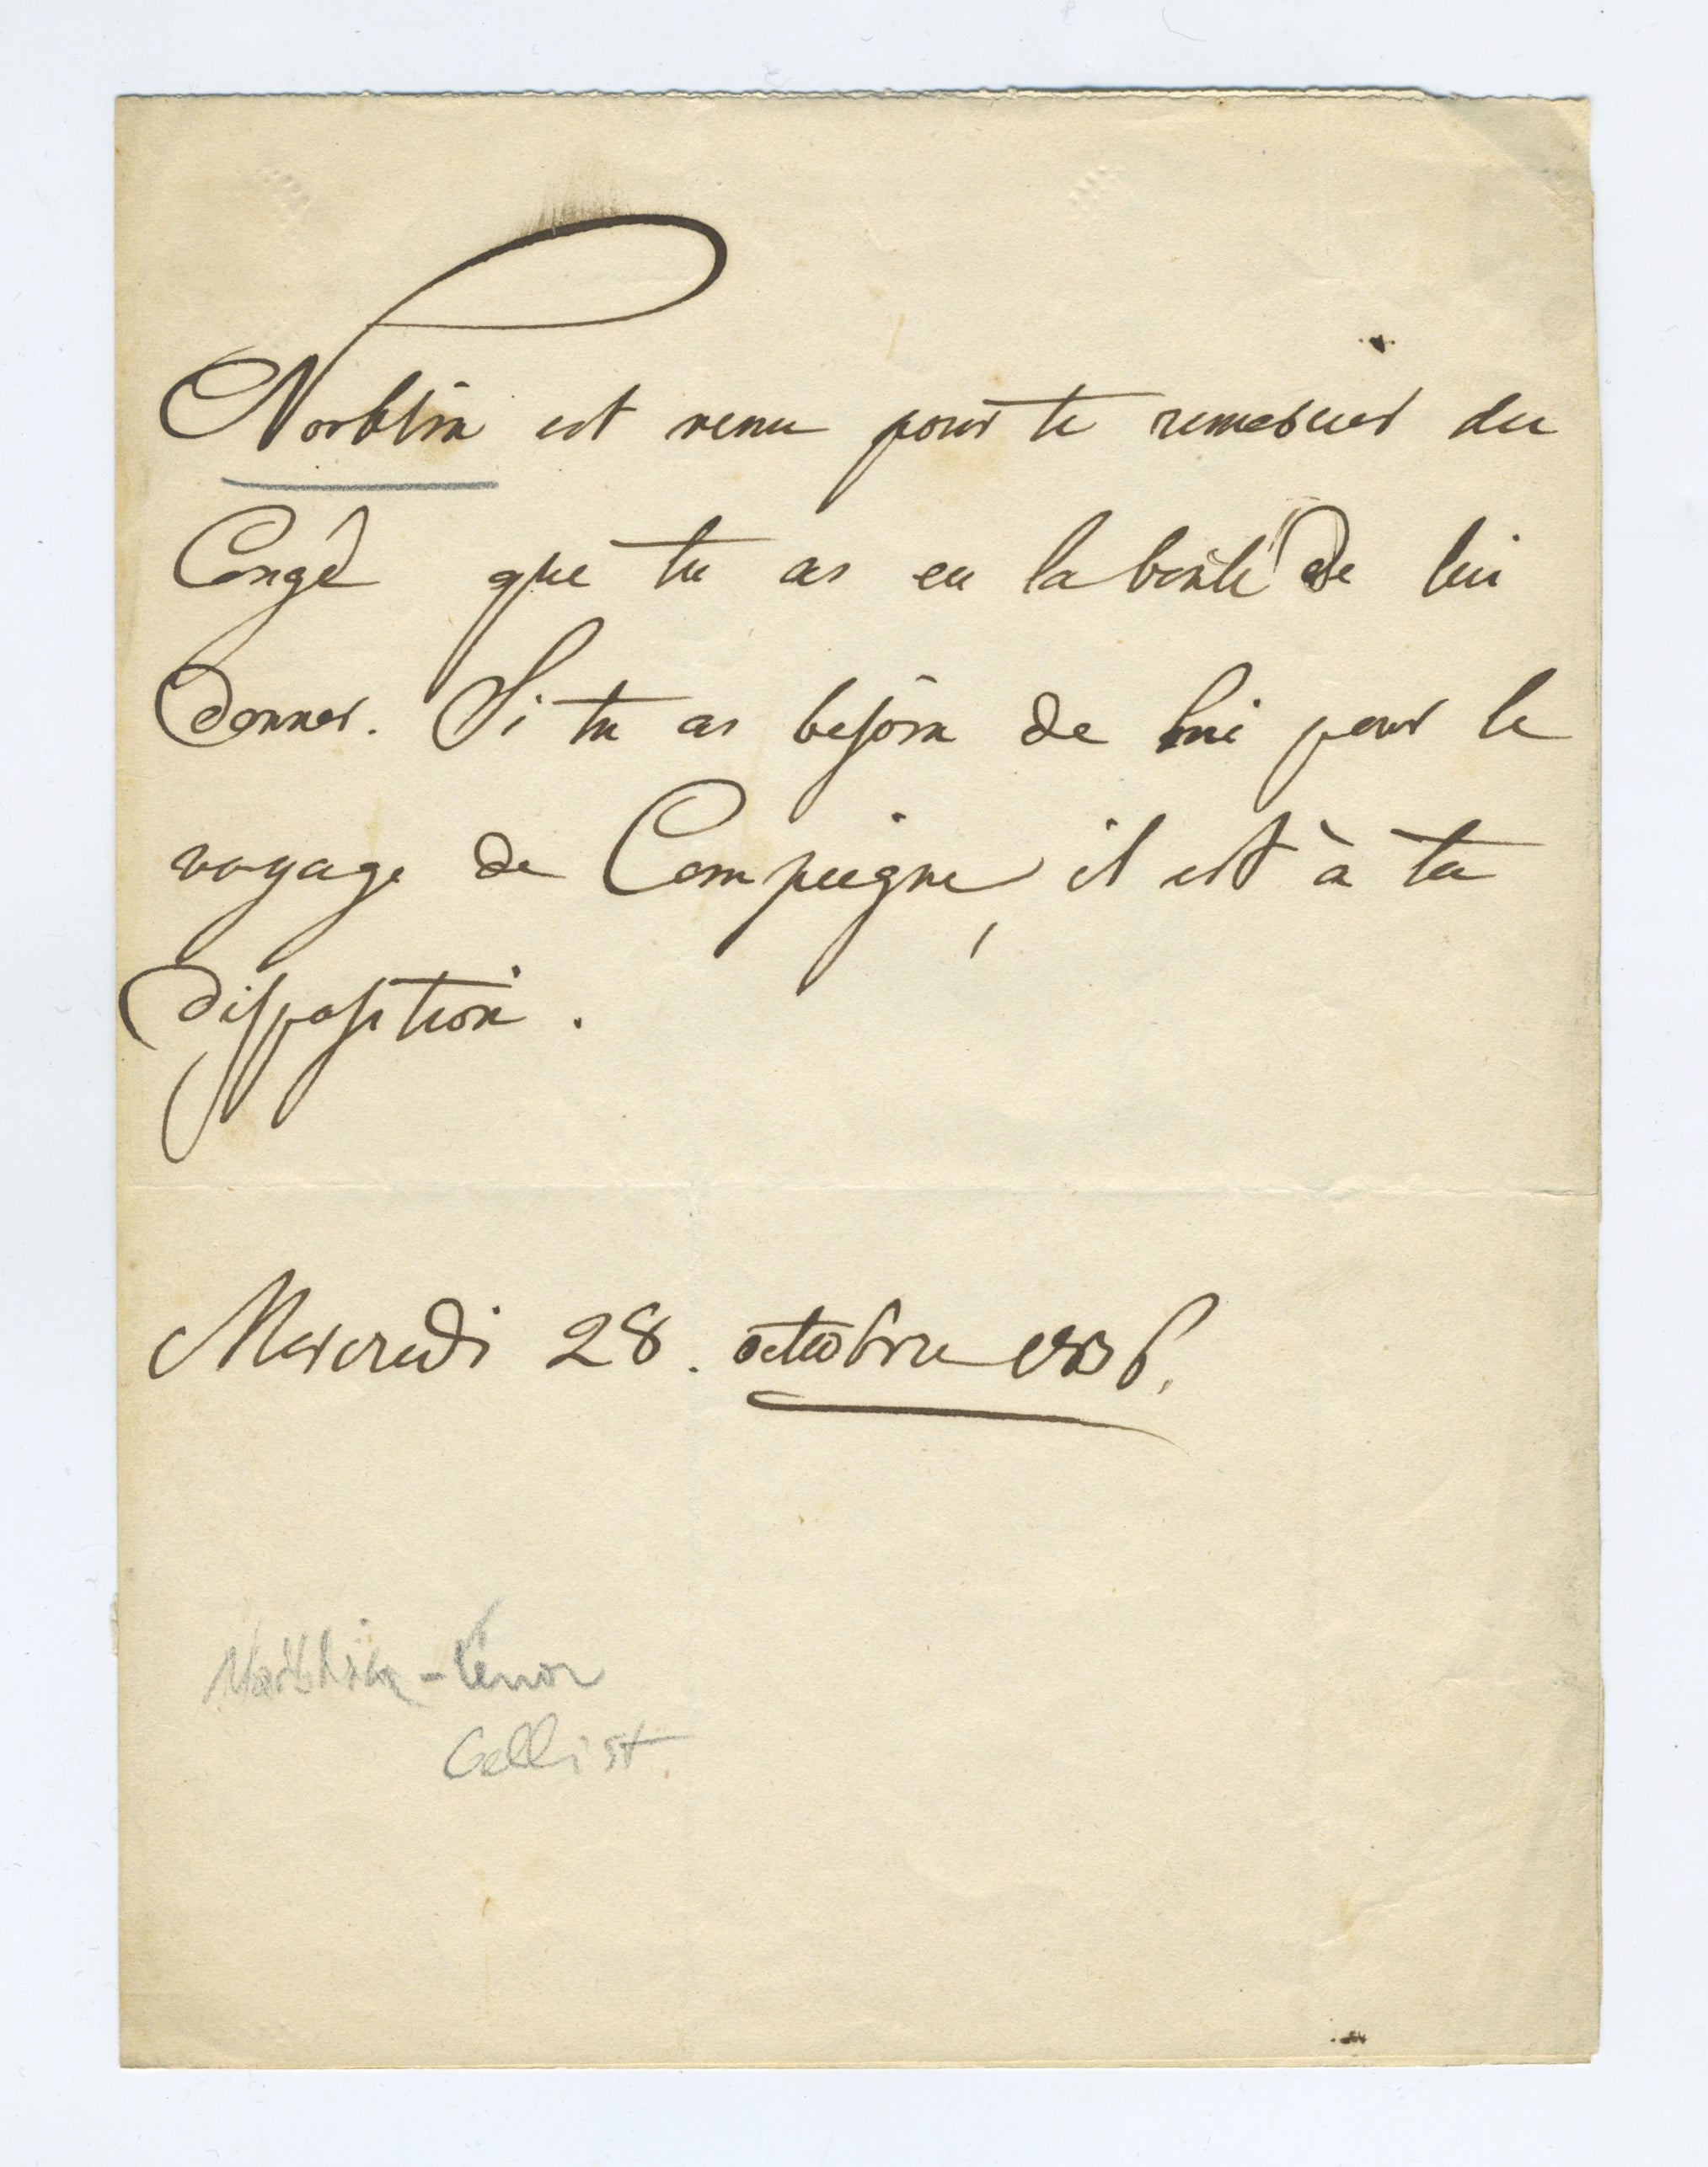 Norblin est venu pour te remercier du
Congé que tu as eu la bonté de lui
donner. Si tu as besoin de lui pour le
voyage de Compiegne, il est à ta
disposition.
Mercredi 28. octobre 1836.
Tenor
Cellist